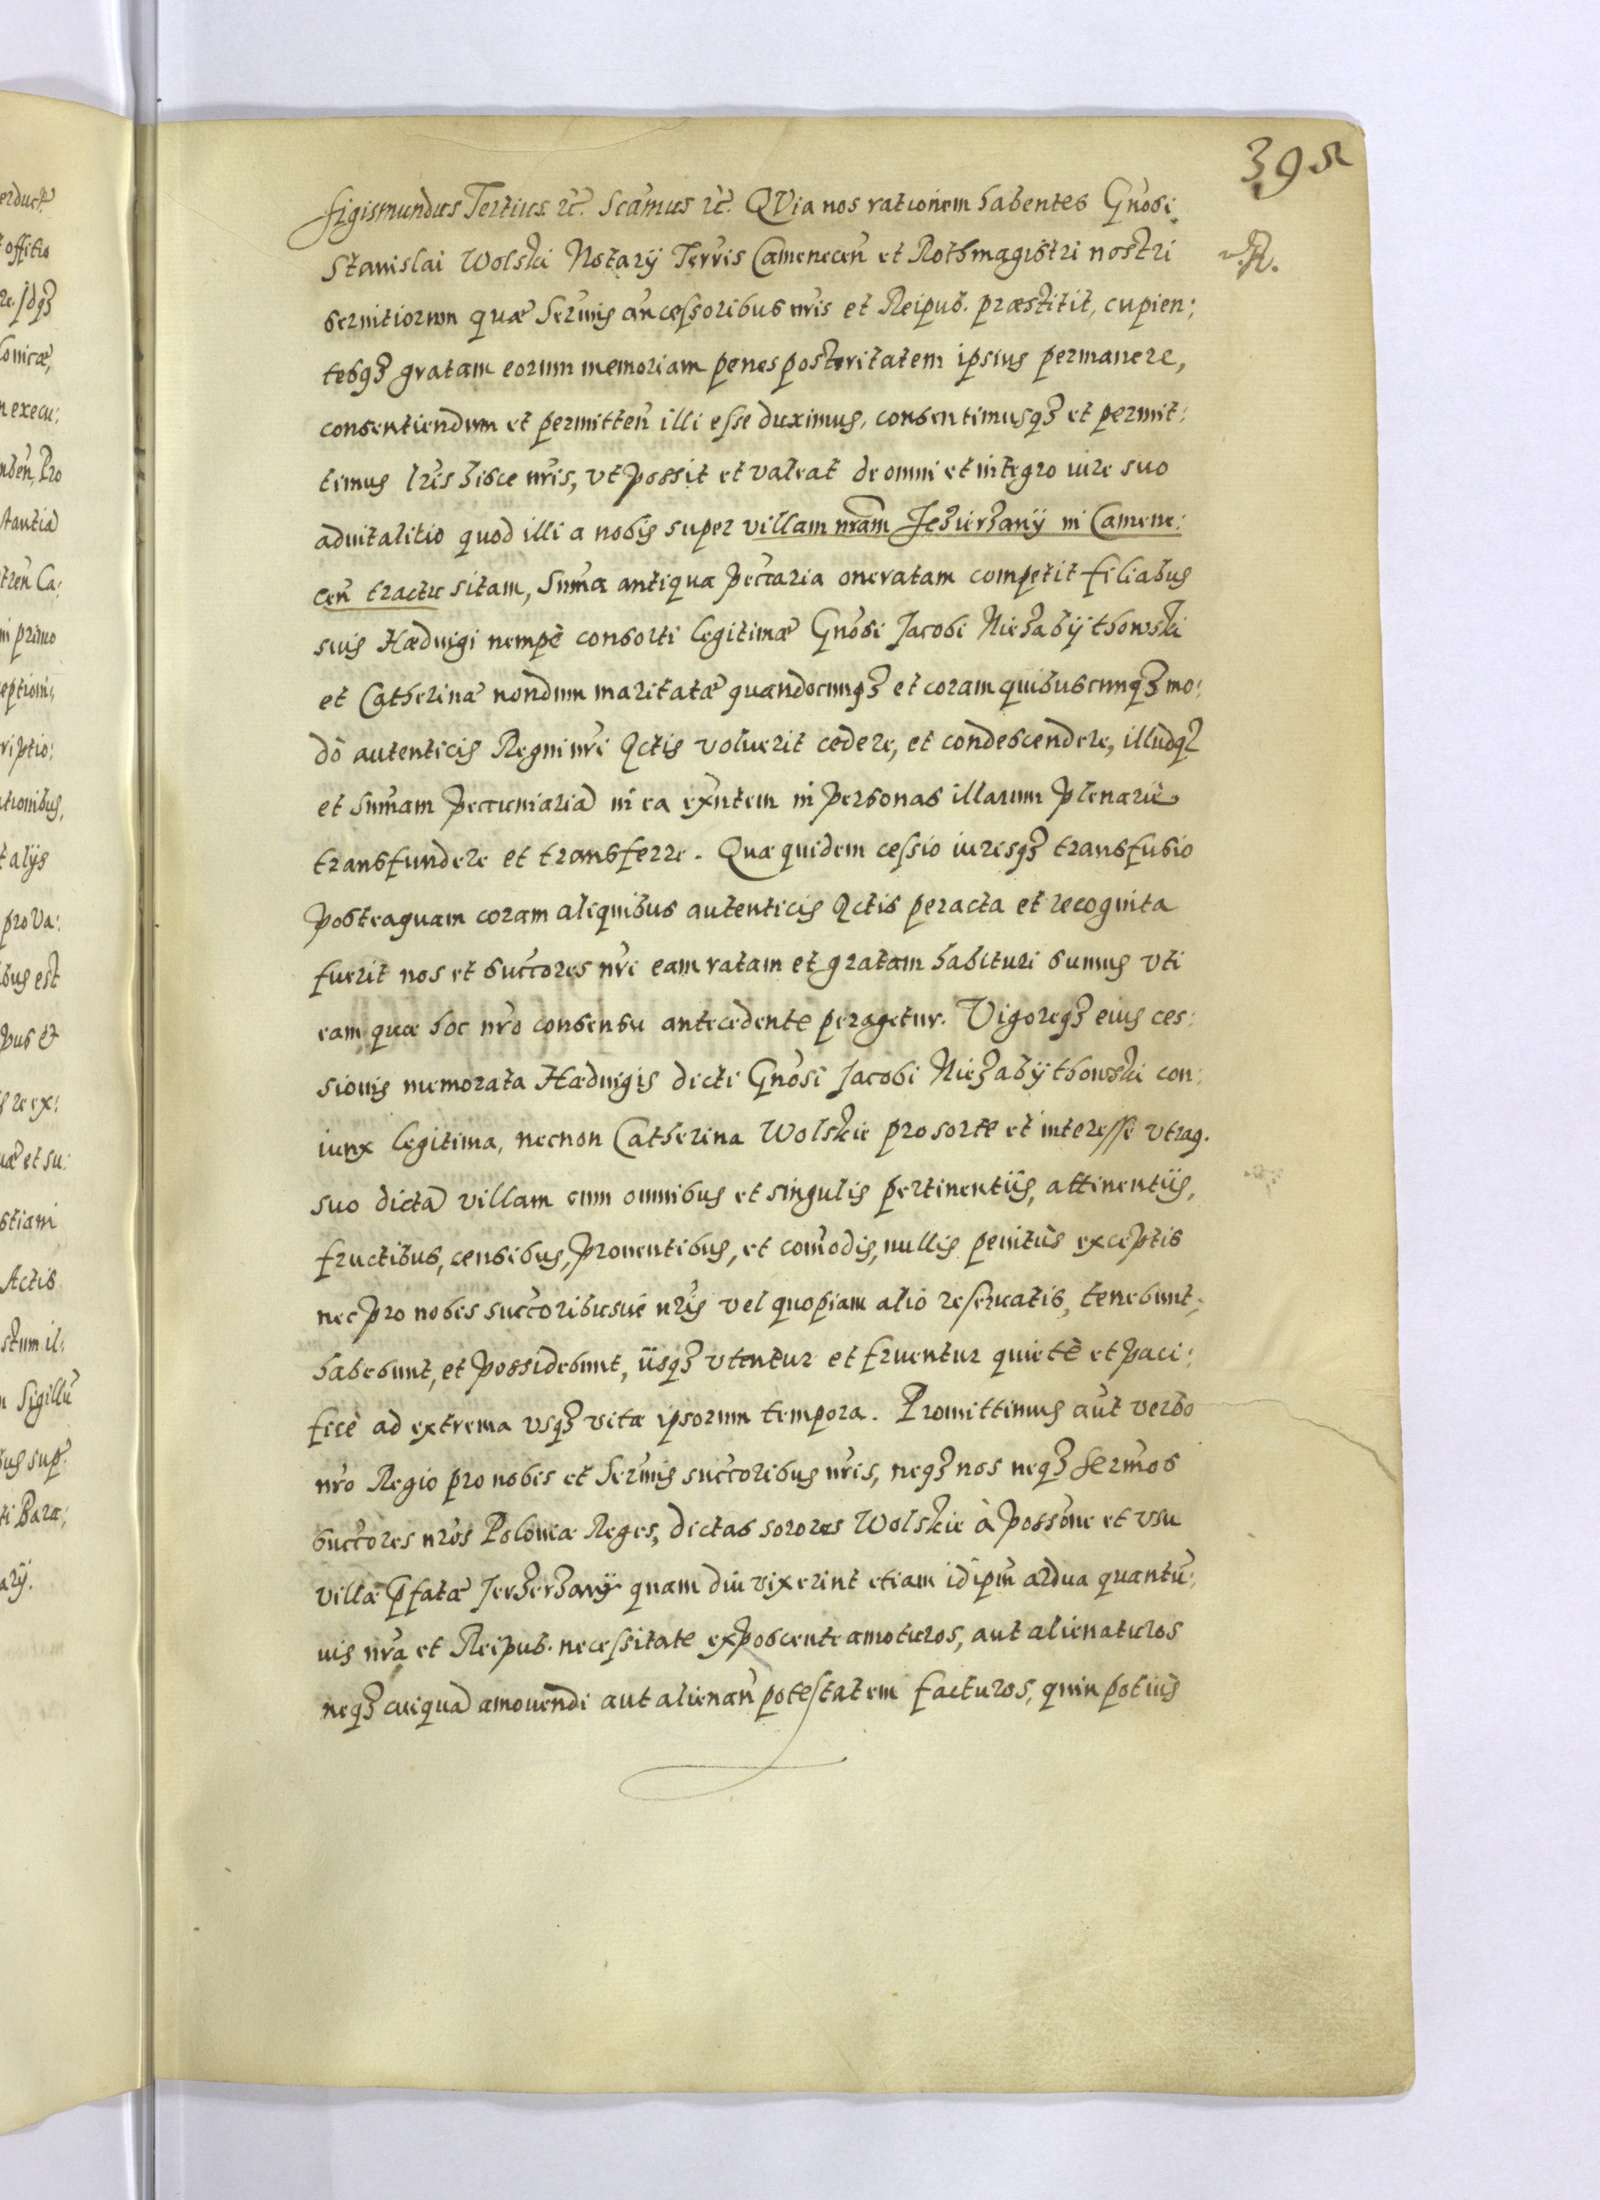 395
Sigismundus Tertius rc̃. Scamus rc̃. QVia nos rationem habentes Gnosi
Stanislai Wolski Notarÿ Terris Camenecen̄ et Rothmagistri nostri
seruitiorum quæ Sermis ancessoribus nris et Reipub. præstitit, cupien:
tesq3 gratam eorum memoriam penes posteritatem ipsius permanere,
consentiendum et permitten̄ illi esse duximus, consentimusq3 et permit:
timus lris hisce nris, vt possit et valeat de omni et integro iure suo
aduitalitio quod illi a nobis super villam nram Jezierzanÿ in Camene:
cen̄ tractu sitam, Suma antiqua pectaria oneratam competit filiabus
suis Hæduigi nempè consorti legitimæ Gnosi Jacobi Niezabÿthowski
et Catherinæ nondum maritatæ quandocunq3 et coram quibuscunq3 mo:
dò autenticis Regni nri Actis voluerit cedere, et condescendere, illudq3
et sumam pecuniariã in ea exñtem in personas illarum plenariè
transfundere et transferre. Quæ quidem cessio iurisq3 transfusio
posteaquam coram aliquibus autenticis Actis peracta et recognita
fuerit nos et succores nri eam ratam et gratam habituri sumus vti
eam quæ hoc nro consensu antecedente peragetur. Vigoreq3 eius ces:
sionis memorata Hæduigis dicti Gnosi Jacobi Niezabÿthowski con:
iunx legitima, necnon Catherina Wolskie pro sorte et interesse vtraq.
suo dictã villam cum omnibus et singulis pertinentiis, attinentiis,
fructibus, censibus, prouentibus, et comodis, nullis penitùs exceptis
nec pro nobis succoribusuè nris vel quopiam alio reseruatis, tenebunt,
habebunt, et possidebunt, iisq3 vtentur et fruentur quietè et paci:
ficè ad extrema vsq3 vitæ ipsorum tempora. Promittimus aũt verbo
nro Regio pro nobis et Sermis succoribus nris, neq3 nos neq3 Sermos
succores nros Poloniæ Reges, dictas sorores Wolskie à possone et vsu
villæ pfatæ Jerzerzanÿ quam diu vixerint etiam id ipm ardua quantu:
uis nra et Reipub. necessitate exposcente amoturos, aut alienaturos
neq3 cuiquã amouendi aut alienan̄ potestatem facturos, quin potius